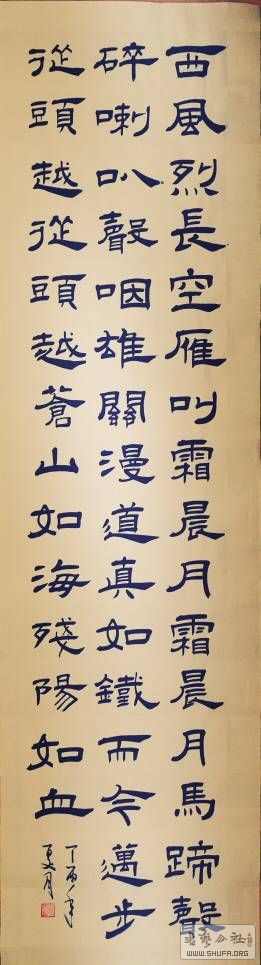 西風烈長空雁叫霜晨月霜晨月馬蹄聲
碎喇叭聲咽雄關漫道真如鐵而今邁步
從頭越從頭越蒼山如海殘陽如血
丁酉年
夏月
WWW.SHUFA.ORG